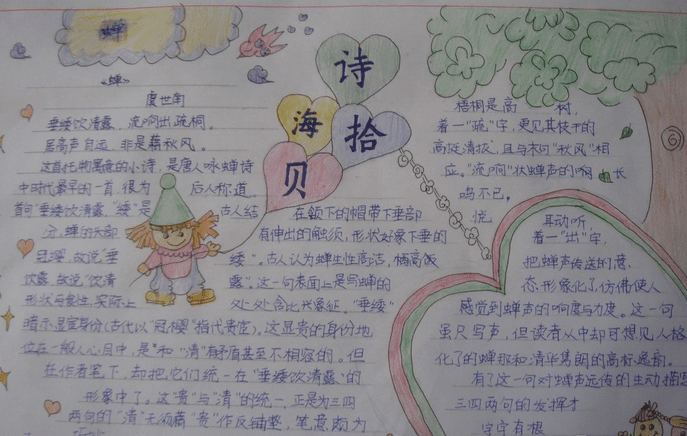 蝉
诗
海
拾
贝
《蝉》
虞世南
垂緌饮清露，流响出疏桐。
居高声自远，非是藉秋风。
这首托物寓意的小诗，是唐人咏蝉诗
中时代最早的一首，很为 后人称道
首句"垂緌饮清露"，"緌"是 古人结
在颔下的帽带下垂部
分，蝉的头部 有伸出的触须，形状好象下垂的
冠缨，故说"垂 緌"。古人认为蝉生性高洁，栖高饮
饮露，故说"饮清 露"。这一句表面上是写蝉的
形状与食性，实际上 处处含比兴象征。"垂緌"
暗示显宦身份(古代以"冠缨"指代贵宦)。这显贵的身份地
位在一般人心目中，是和"清"有矛盾甚至不相容的。但
在作者笔下，却把它们统一在"垂緌饮清露"的
形象中了。这"贵"与"清"的统一，正是为三四
两句的"清"无须藉"贵"作反铺垫，笔意颇为
梧桐是高 树，
着一"疏"字，更见其枝干的
高挺清拔，且与末句"秋风"相
应。"流响"状蝉声的 长
鸣不已，
悦 耳动听，
着一"出"字，
把蝉声传送的意
态形象化了，仿佛使人
感觉到蝉声的响度与力度。这一句
虽只写声，但读者从中却可想见人格
化了的蝉那和清华隽朗的高标逸韵。
有了这一句对蝉声远传的生动描
三四两句的发挥才
字字有根